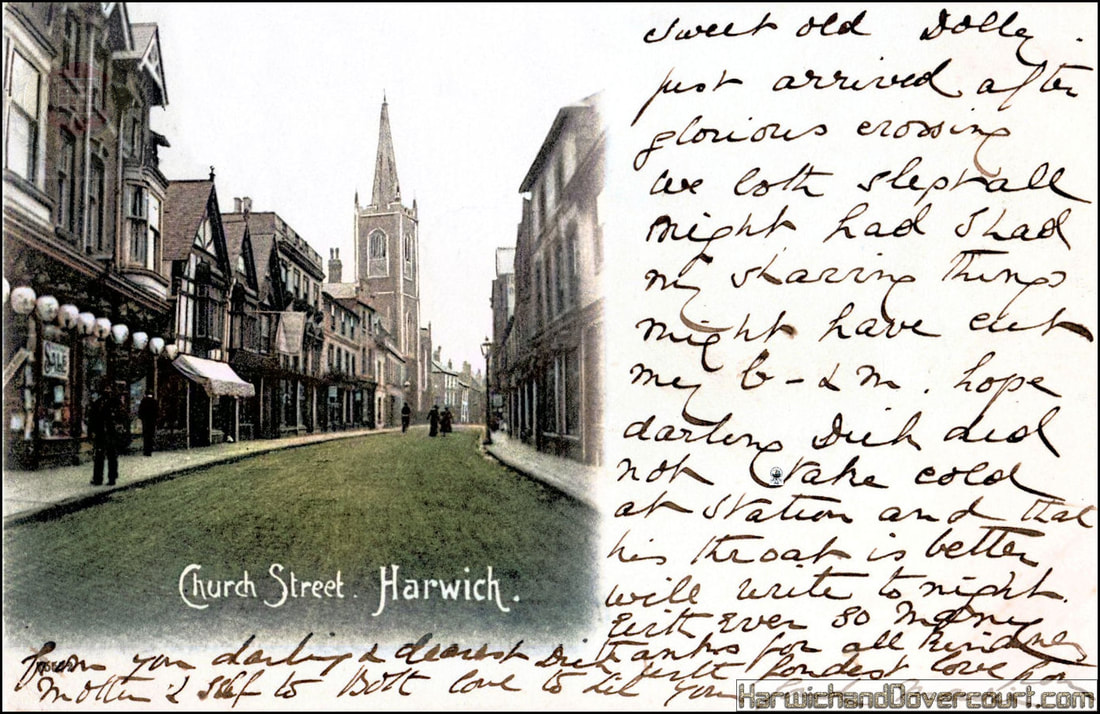 sweet old Dolly.
just arrived after
glorious crossing
we both slept all
night had I had
my shaving things
might have cut
my b-dm. hope
darling Dick did
not take cold
at Station and that
his throat is better
will write to night.
With Ever so many
thanks for all kindness
from you darling & dearest Dick with fondest love from
Mother & self to Both love to Lil
SALE
Church Street. Harwich.
HarwichandDovercourt.com